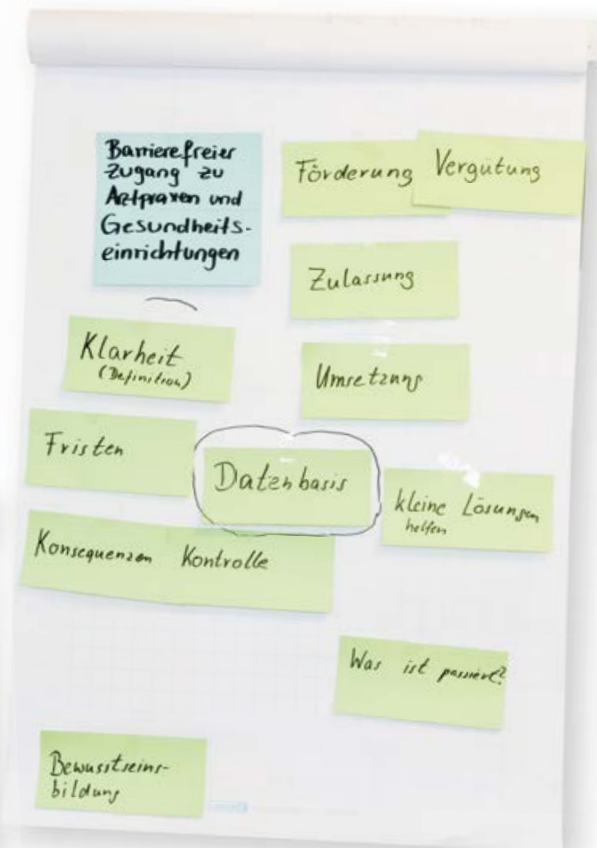 Barrierefreier
Zugang zu
Arztpraxen und
Gesundheits-
einrichtungen
Förderung
Vergütung
Zulassung
Klarheit
(Definition)
Umsetzung
Fristen
Datenbasis
kleine Lösungen
helfen
Konsequenzen
Kontrolle
Was ist passiert?
Bewusstseins-
bildung